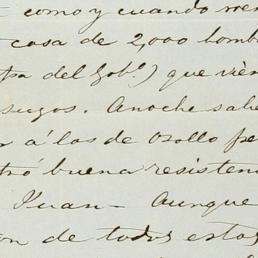 como y cuando
casa de 2,000 homb
del Gob.º) que vien
sugos. Anoche sabe
r á los de Osollo pe
tró buena resisten
Juan — Aunque
on de todos estos